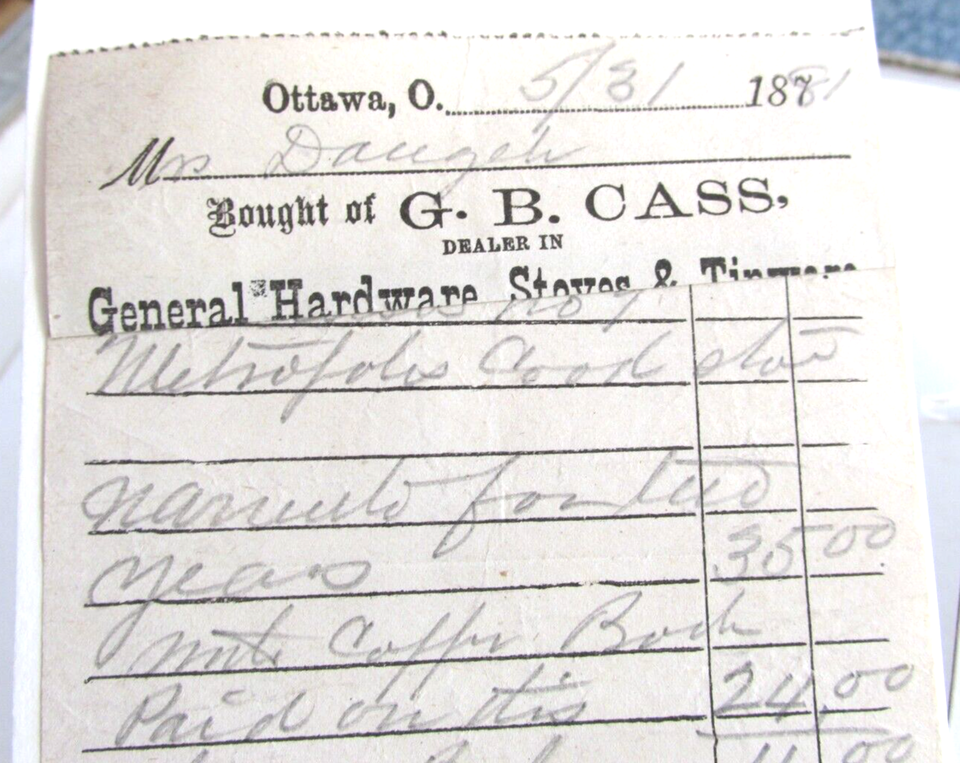 Ottawa, O. 5/31 1881
Mrs Daugeh
Bought of G. B. CASS,
DEALER IN
General Hardware, Stoves & Tinware
no 7
Metropolis Cood stov
for two
years 35 00
Coffe
Paid on this 24,00
11 00